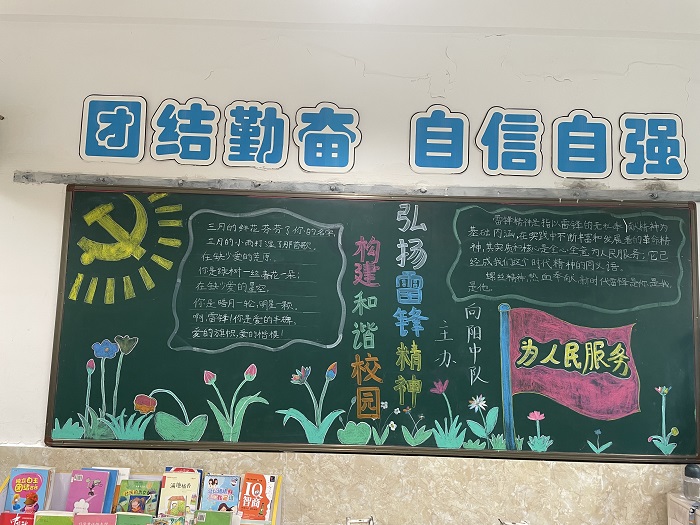 团结勤奋 自信自强
三月的鲜花芬芳了你的名字,
三月的小雨打湿了那首歌.
在缺少爱的荒原.
你是绿树一丝 春花一朵;
在缺少爱的星空.
你是皓月一轮,明星一颗.
啊,雷锋!你是爱的丰碑,
爱的旗帜,爱的楷模!
弘扬雷锋精神
构建和谐校园
主办
向阳中队
雷锋精神是指以雷锋的无私奉献精神为
基础内涵,在实践中不断丰富和发展着的革命精
神,其实质和核心是全心全意为人民服务,它已
经成我们这个时代精神的同义语.
螺丝精神,热血奉献,新时代雷锋是你是我
是他.
为人民服务
IQ
智商